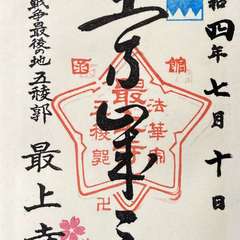 和四年七月十日
函館
法華宗
最上寺
五稜郭
卍
戦争最後の地 五稜郭
最上寺